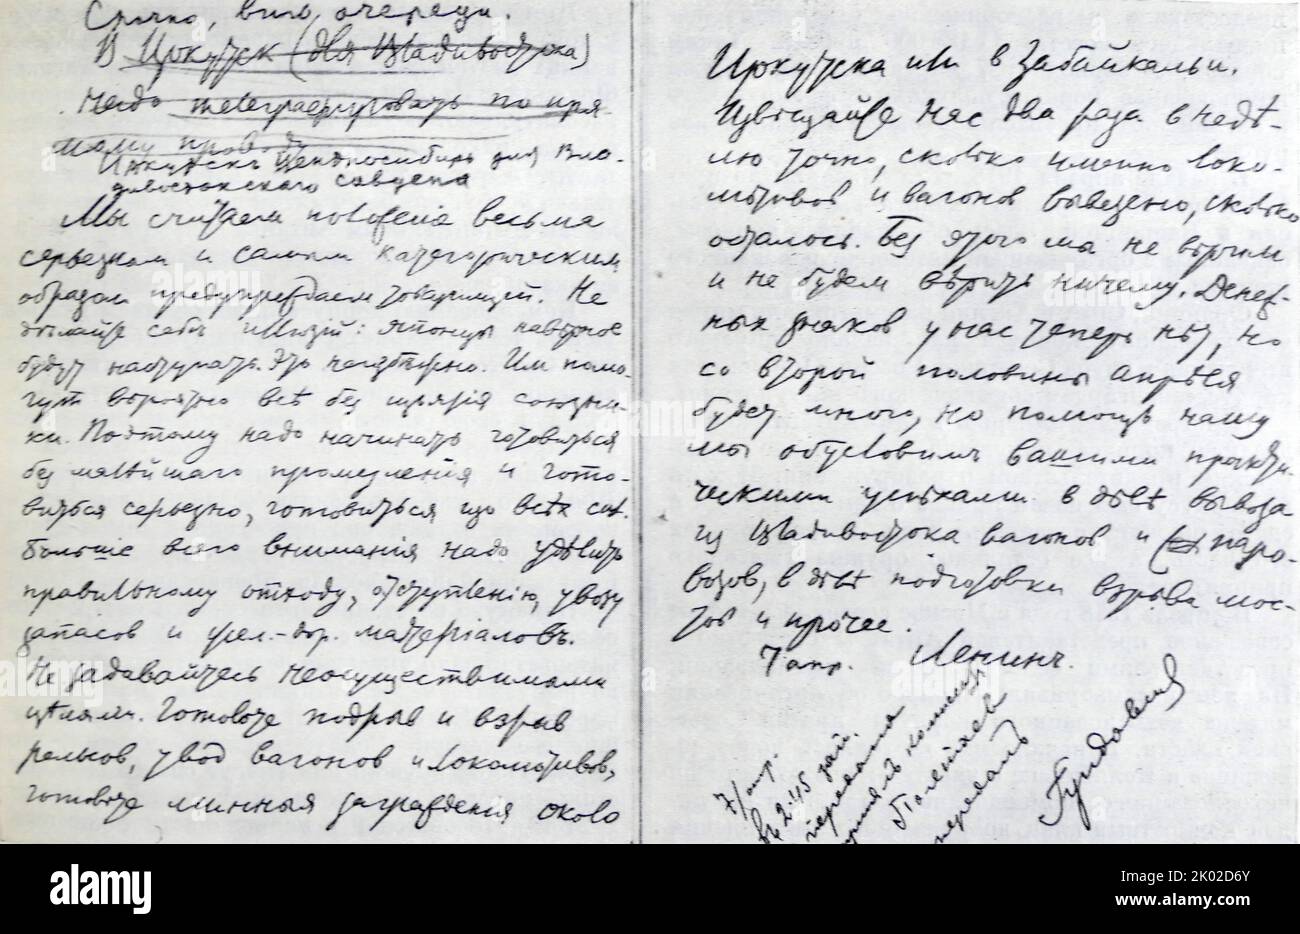 Срочно, вне очереди.
В Иркутск (для Владивостока)
Надо телеграфировать по пря-
мому проводу
Иркутскъ Центросибирь для Вла-
дивостокского совдепа
Мы считаем положенiе весьма
серьезным и самым категорическим
образом предупреждаем товарищей. Не
дѣлайте себѣ иллюзий: японцы навѣрное
будут наступать. Это неизбѣжно. Им помо-
гут вѣроятно всѣ без изъятiя союзни-
ки. Поэтому надо начинать готовиться
без малѣйшаго промедленiя и гото-
виться серьезно, готовиться изо всѣх сил.
Больше всего вниманiя надо удѣлить
правильному отходу, отступленiю, увозу
запасов и жел.-дор. матерiаловъ.
Не задавайтесь неосуществимыми
цѣлями. Готовьте подрыв и взрыв
рельсов, увод вагонов и локомотивов,
готовьте минныя загражденiя около
Иркутска или в Забайкальи.
Извѣщайте нас два раза в недѣ-
лю точно, сколько именно локо-
мотивов и вагонов вывезено, сколько
осталось. Без этого мы не вѣрим
и не будем вѣрить ничему. Денеж-
ных знаков у нас теперь нѣт, но
со второй половины апрѣля
будет много, но помощь нашу
мы обусловим вашими практи-
ческими успѣхами в дѣлѣ вывоза
из Владивостока вагонов и паро-
возов, в дѣлѣ подготовки взрыва мос-
тов и прочее.
7 апр. Ленинъ.
7/апр.
въ 2.45
передана
принялъ
Полетаев
передалъ